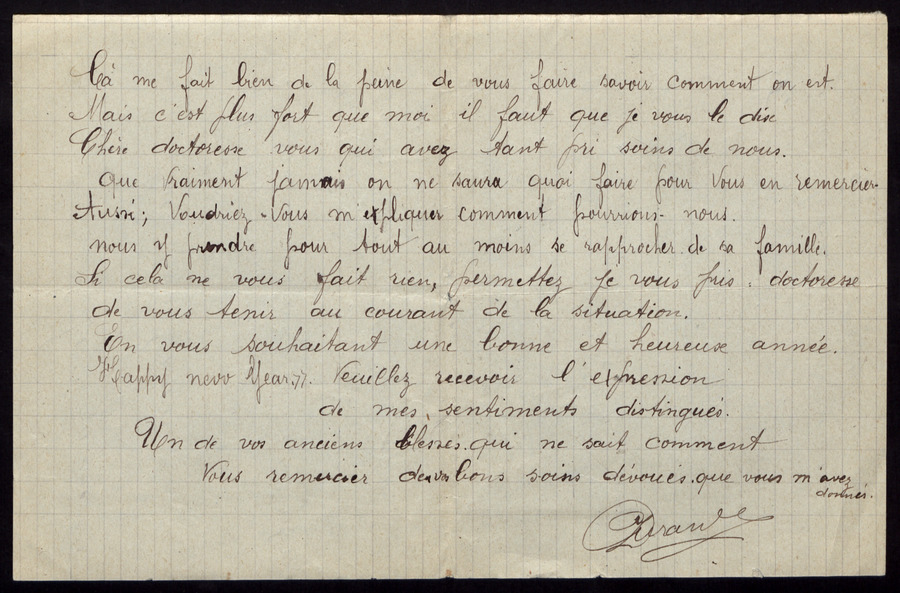 Cà me fait bien de la peine de vous faire savoir comment on est.
Mais c'est plus fort que moi il faut que je vous le dise
Chère doctoresse vous qui avez tant pri soins de nous.
que vraiment jamais on ne saura quoi faire pour vous en remercier.
Aussi; Voudriez-vous m'expliquer comment pourrions-nous.
nous y prendre pour tout au moins se rapprocher de sa famille.
Si cela ne vous fait rien, permettez je vous pris. doctoresse
de vous tenir au courant de la situation.
En vous souhaitant une bonne et heureuse année.
Happy new Year.)). Veuillez recevoir l'expression
de mes sentiments distingués.
Un de vos anciens blessés. qui ne sait comment
vous remercier de vos bons soins dévoués. que vous m'avez
donnés.